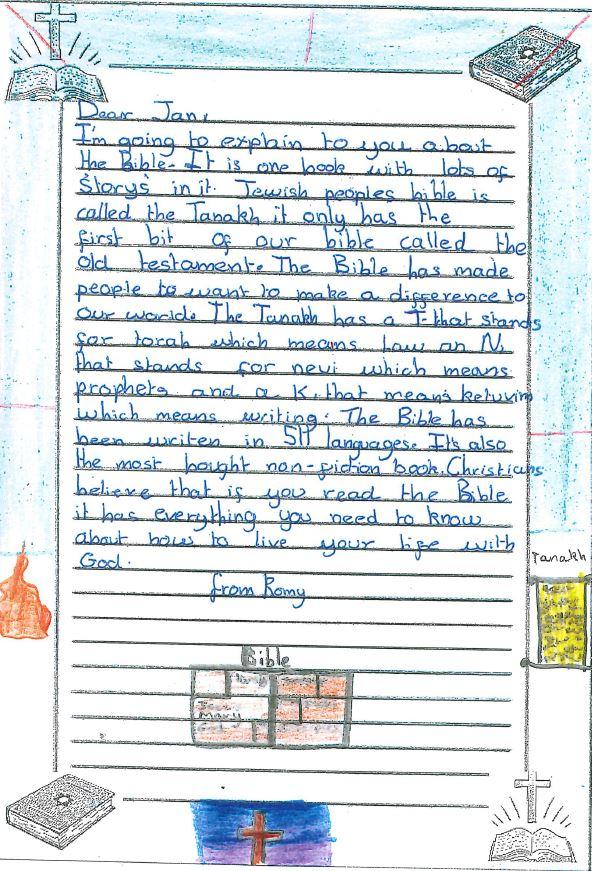 Dear Jan,
I'm going to explain to you about
the Bible. It is one book with lots of
Storys in it. Jewish peoples bible is
called the Tanakh it only has the
first bit of our bible called the
old testament. The Bible has made
people to want to make a difference to
our world. The Tanakh has a T-that stands
for torah which means Law an N,
that stands for nevi which means
prophets and a K, that means ketuvim
which means writing. The Bible has
been writen in 511 languages. It's also
the most bought non-fiction book. Christians
believe that if you read the Bible
it has everything you need to know
about how to live your life with
God.
from Romy
Tanakh
Bible
Mary